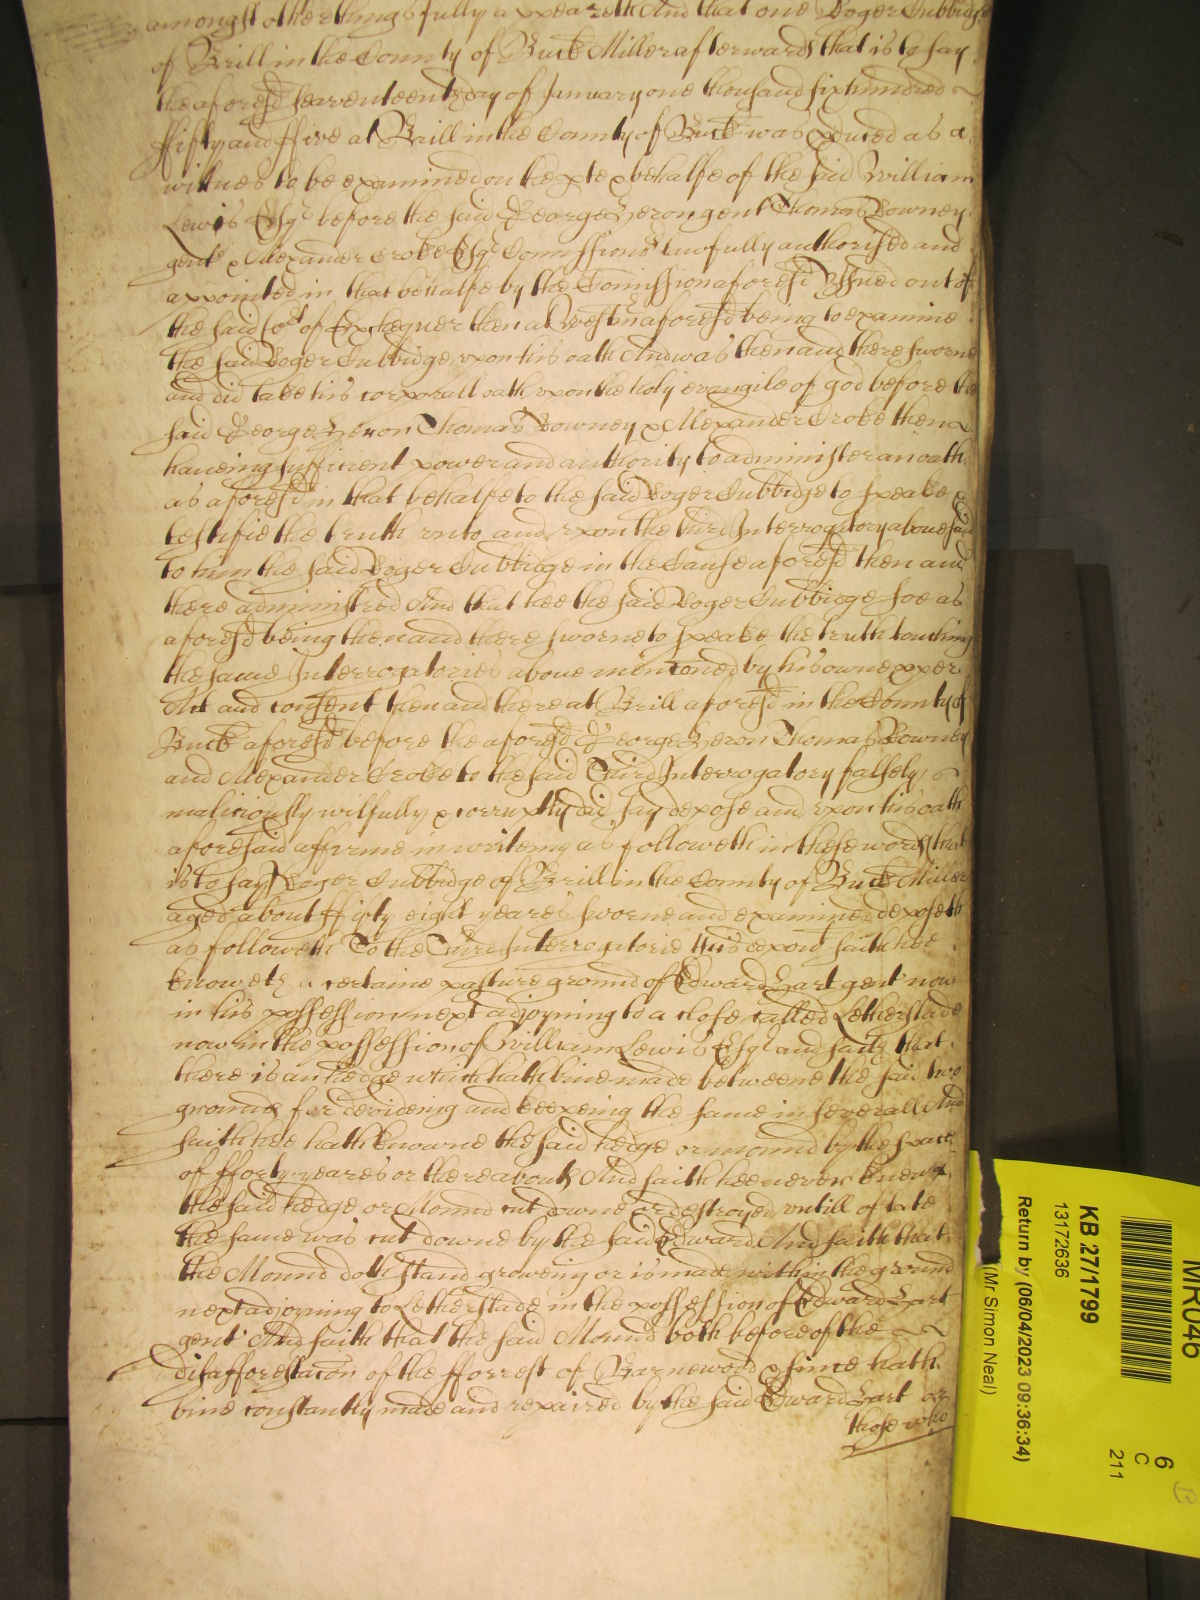 amongst other things fully appeareth And that one Roger Tubbidge
of Brill in the County of Buck Miller afterwards that is to say
the aforesd seaventeenth day of January one thousand six hundred
ffifty and ffive at Brill in the County of Buck was pduced as a
witnes to be examined on the pte & behalfe of the said William
Lewis Esqr before the said George Heron gent Thomas Downey
gent & Alexander Croke Esqr Comissionrs lawfully authorised and
appointed in that behalfe by the Comission aforesd Issued out of
the said Cort of Exchequer then at Westmr aforesd being to examine
the said Roger Tubbidge upon his oath And was then and there sworne
and did take his corporall oath upon the holy evangile of god before the
said George Heron Thomas Downey & Alexander Croke then
haueing sufficient power and authority to administer an oath
as aforesd in that behalfe to the said Roger Tubbidge to speake &
testifie the truth vnto and vpon the third Interrogatory abouesaid
To him the said Roger Tubbidge in the Cause aforesd then and
there administred And that hee the said Roger Tubbidge soe as
aforesd being then and there sworne to speake the truth touching
the same Interrogatories aboue menconed by his owne pper
Act and consent then and there at Brill aforesd in the County of
Buck aforesd before the aforesd George Heron Thomas Downey
and Alexander Croke to the said Third Interrogatory falsely
maliciously wilfully & corruptly did say depose and vpon his oath
aforesaid affirme in writeing as followeth in these words that
is to say Roger Tubbidge of Brill in the County of Buck Miller
aged about ffifty eight yeares sworne and examined deposeth
as followeth To the Third Interrogatorie this depont saith hee
knoweth a certaine pasture ground of Edward Hart gent now
in his possession next adjoyning to a close called Letherslade
now in the possession of William Lewis Esqr and saith that
there is an hedge which hath bine made betweene the said two
grounds for devideing and keepeing the same in severall And
saith hee hath knowne the said hedge or mound by the space
of fforty yeares or thereabouts And saith hee never knewe
the said hedge or Mound cut downe or destroyed vntill of late
the same was cut downe by the said Edward And saith that
the Mound doth stand groweing or is made within the ground
next adjoyning to Letherslade in the possession of Edward Hart
gent And saith that the said Mound both before of the
disafforestacon of the fforrest of Barnewood & since hath
bine constantly made and repaired by the said Edward Hart or
those who
MR04b
KB 27/1799
13172636
Return by (06/04/2023 09:36:34)
(Mr Simon Neal)
6
C
211